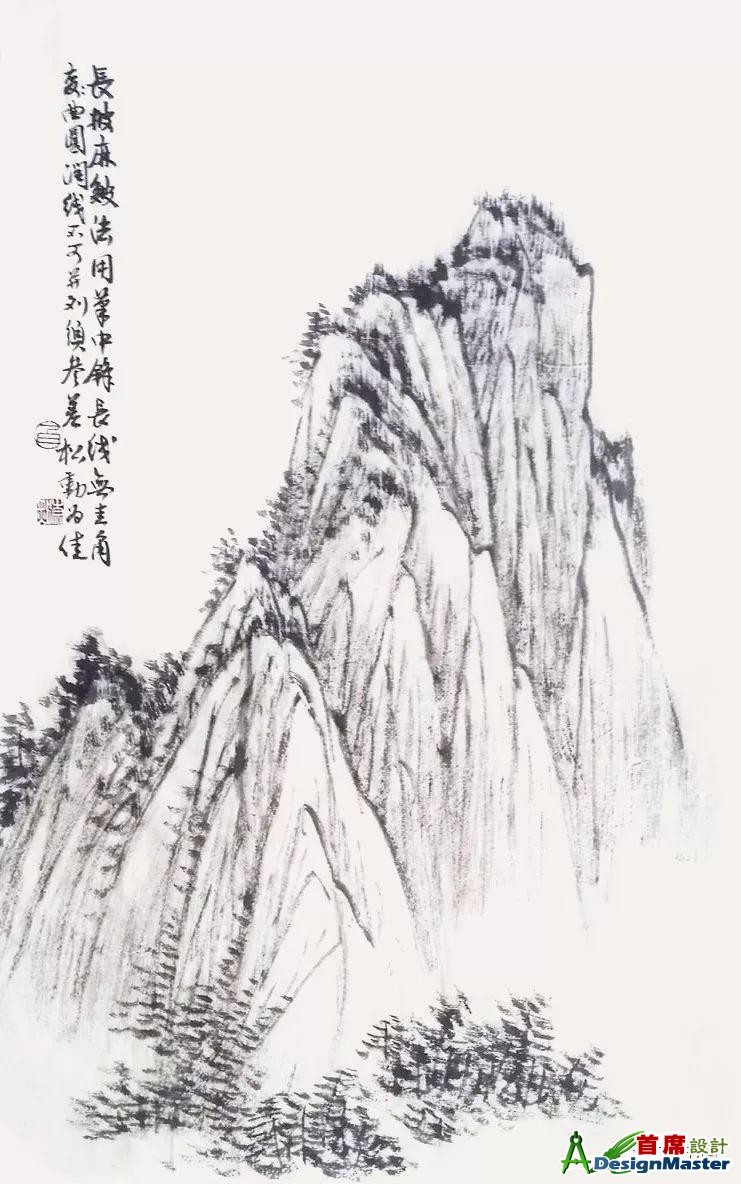 長披麻皴法用筆中鋒長线無圭角
変曲圓润线不可并列須參差松動为佳
首席設計
DesignMaster